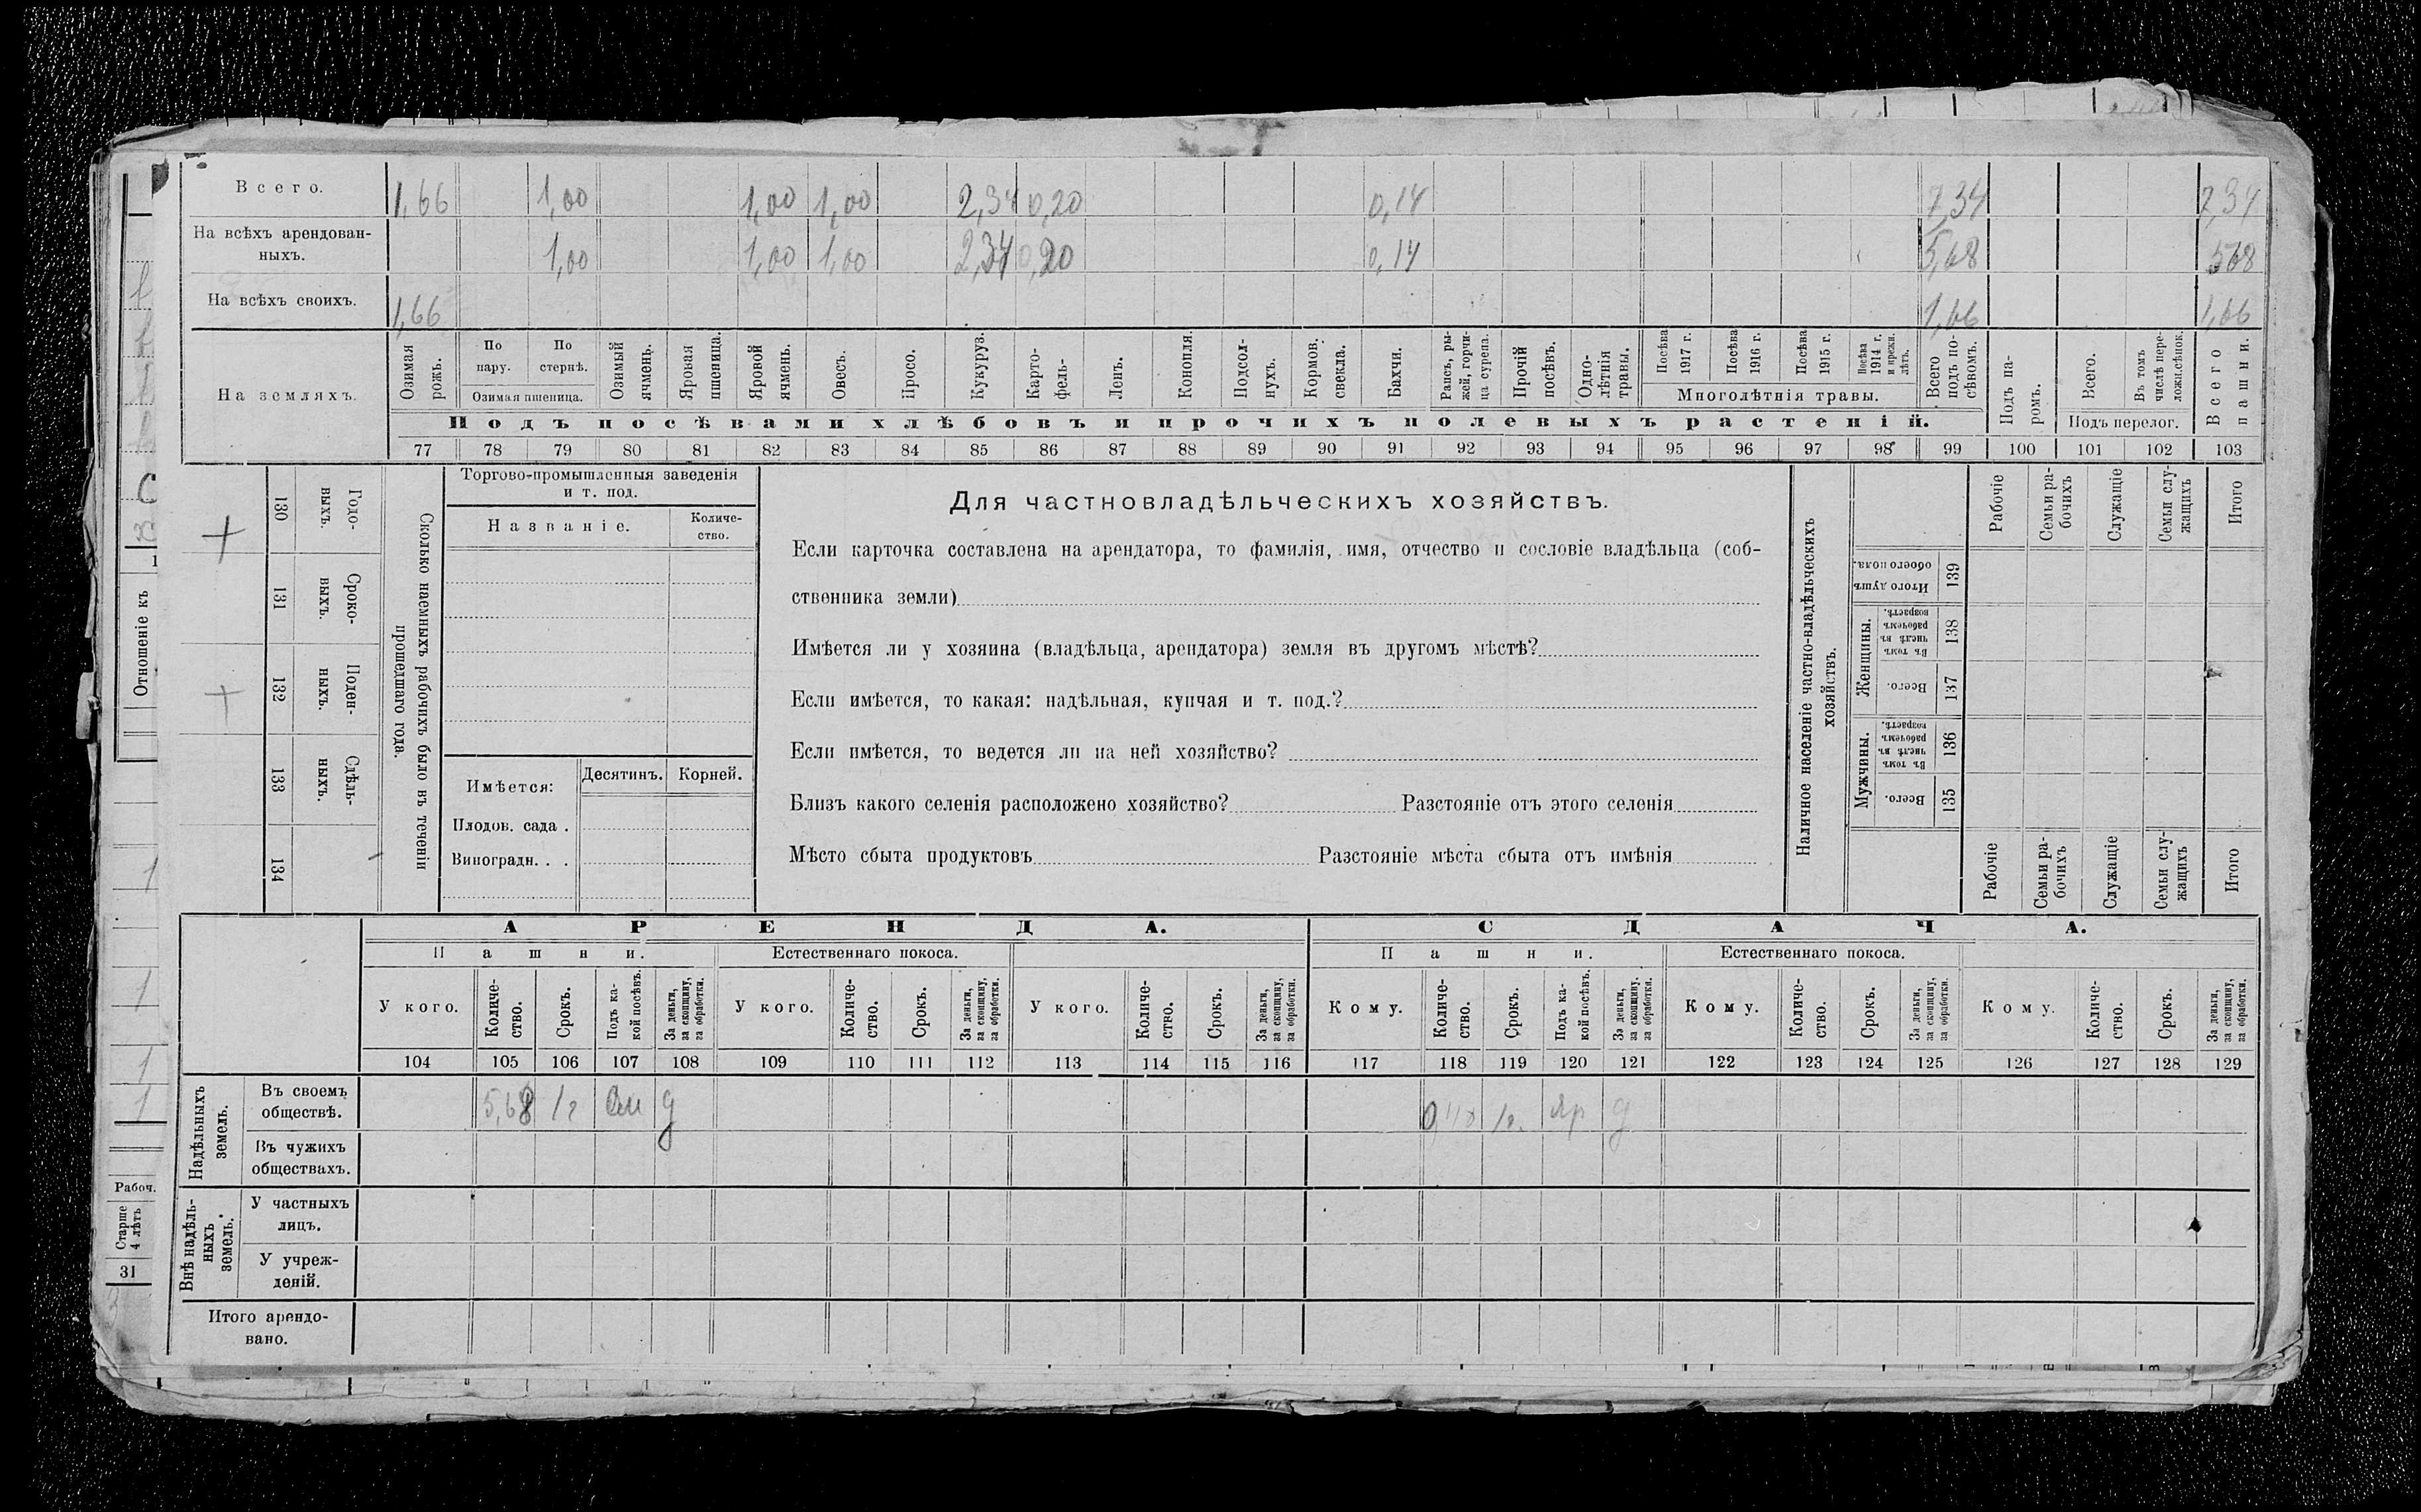 Всего. 1,66 1,00 1,00 1,00 2,34 0,20 0,14 7,34 7,34
На всѣхъ арендован-
ныхъ. 1,00 1,00 1,00 2,34 0,20 0,14 5,68 5 68
На всѣхъ своихъ. 1,66 1,66 1,66
На земляхъ.
Озимая рожь.
По пару.
По стернѣ.
Озимая пшеница.
Озимый ячмень.
Яровая пшеница.
Яровой ячмень.
Овесъ.
Просо.
Кукуруз.
Карто-
фель-
Ленъ.
Конопля.
Подсол-
нухъ.
Кормов. свекла.
Бахчи.
Рапсъ, ры-
жей, горчи-
ца сурепа.
Прочій посѣвъ.
Одно-
лѣтнія травы.
Посѣва 1917 г.
Посѣва 1916 г.
Посѣва 1915 г.
Посѣва 1914 г. и прежн. лѣтъ.
Многолѣтнія травы.
Всего подъ по-
сѣвомъ.
Подъ па-
ромъ.
Всего.
Въ томъ числѣ пере-
ложн.сѣнок.
Подъ перелог.
Всего пашни.
Подъ посѣвами хлѣбовъ и прочихъ полевыхъ растеній.
77 78 79 80 81 82 83 84 85 86 87 88 89 90 91 92 93 94 95 96 97 98 99 100 101 102 103
130 Годо-
выхъ.
131 Сроко-
выхъ.
132 Поден-
ныхъ.
133 Сдѣль-
ныхъ.
134
Сколько наемныхъ рабочихъ было въ теченіи
прошедшаго года.
Торгово-промышленныя заведенія
и т. под.
Названіе.
Количе-
ство.
Имѣется:
Десятинъ. Корней.
Плодов. сада .
Виноградн. . .
Для частновладѣльческихъ хозяйствъ.
Если карточка составлена на арендатора, то фамилія, имя, отчество и сословіе владѣльца (соб-
ственника земли)
Имѣется ли у хозяина (владѣльца, арендатора) земля въ другомъ мѣстѣ?
Если имѣется, то какая: надѣльная, купчая и т. под.?
Если имѣется, то ведется ли на ней хозяйство?
Близъ какого селенія расположено хозяйство? Разстояніе отъ этого селенія
Мѣсто сбыта продуктовъ Разстояніе мѣста сбыта отъ имѣнія
Наличное населеніе частно-владѣльческихъ
хозяйствъ.
Рабочіе
Семьи ра-
бочихъ
Служащіе
Семьи слу-
жащихъ
Итого
Итого душъ обоего пола. 139
Женщины.
Въ томъ числѣ въ рабочемъ возрастѣ. 138
Всего. 137
Мужчины.
Въ томъ числѣ въ рабочемъ возрастѣ. 136
Всего. 135
Рабочіе
Семьи ра-
бочихъ
Служащіе
Семьи слу-
жащихъ
Итого
АРЕНДА. СДАЧА.
Пашни. Естественнаго покоса. Пашни. Естественнаго покоса.
У кого.
Количе-
ство.
Срокъ.
Подъ ка-
кой посѣвъ.
За деньги,
за скопщину,
за обработки.
У кого.
Количе-
ство.
Срокъ.
За деньги,
за скопщину,
за обработки.
У кого.
Количе-
ство.
Срокъ.
За деньги,
за скопщину,
за обработки.
Кому.
Количе-
ство.
Срокъ.
Подъ ка-
кой посѣвъ.
За деньги,
за скопщину,
за обработки.
Кому.
Количе-
ство.
Срокъ.
За деньги,
за скопщину,
за обработки.
Кому.
Количе-
ство.
Срокъ.
За деньги,
за скопщину,
за обработки.
104 105 106 107 108 109 110 111 112 113 114 115 116 117 118 119 120 121 122 123 124 125 126 127 128 129
Надѣльныхъ
земель.
Въ своемъ
обществѣ. 5,68 1г д 1г. яр д
Въ чужихъ
обществахъ.
Внѣ надѣль-
ныхъ
земель.
У частныхъ
лицъ.
У учреж-
деній.
Итого арендо-
вано.
Отношеніе къ
Рабоч.
Старше
4 лѣтъ
31